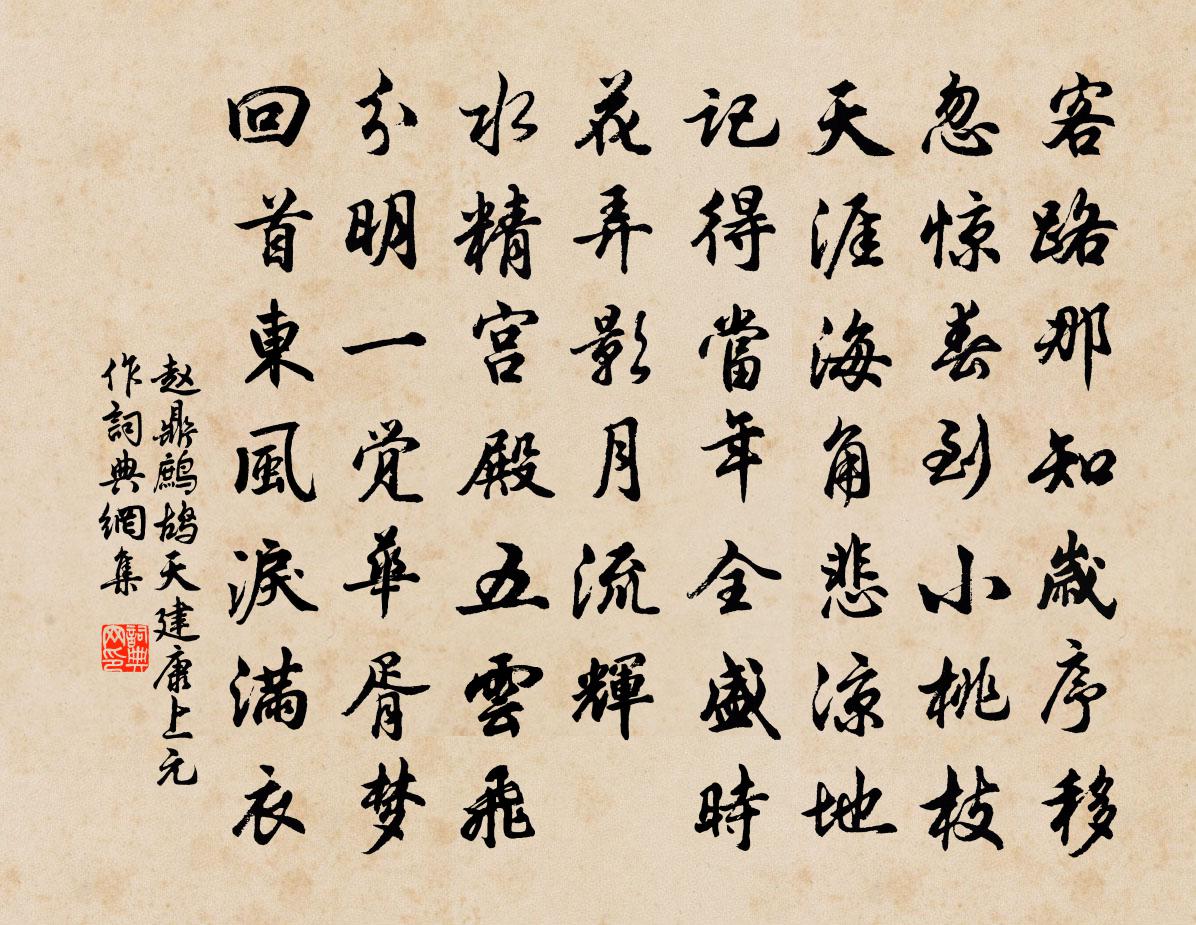 客路那知歲序移
忽惊春到小桃枝
天涯海角悲涼地
記得當年全盛時
花弄影月流輝
水精宮殿五雲飛
分明一覚華胥梦
回首東風淚滿衣
赵鼎鷓鴣天建康上元
作詞典網集
詞典网印